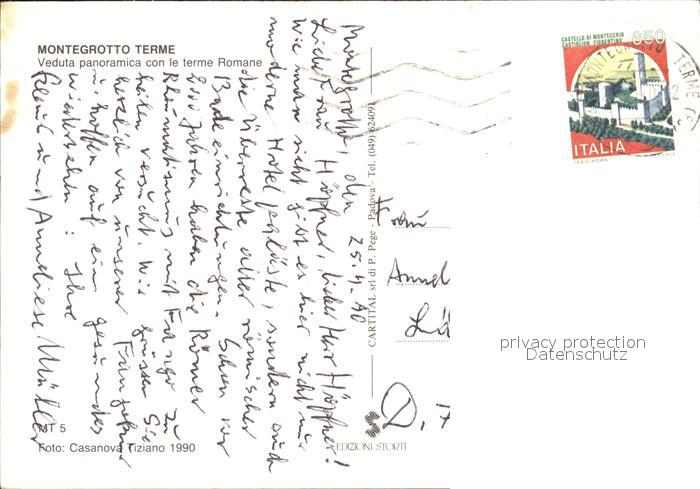 MONTEGROTTO TERME
Veduta panoramica con le terme Romane
Montegrotto, den 25.4.90
Liebe Frau Höpfner, lieber Herr Höpfner!
Wie man sieht gibt es hier nicht nur
moderne Hotelpaläste, sondern auch
die Überreste alter römischer
Badeeinrichtungen. Schon vor
2000 Jahren haben die Römer
Rheumatismus mit Fango zu
heilen versucht. Wir grüssen Sie
herzlich von unserer
u. hoffen auf ein gesundes
wiedersehen! Ihre
und Anneliese Müller
ST 5
Foto: Casanova Tiziano 1990
CARTITAL srl di P. Pege - Padova - Tel. (049) 624091
EDIZIONI STORTI
Frau
Annel
Lä
D.
CASTELLO DI MONTECCHIO
CASTIGLION FIORENTINO
650
ITALIA
I.P.Z.S. ROMA
MONTEGROTTO TERME
privacy protection
Datenschutz